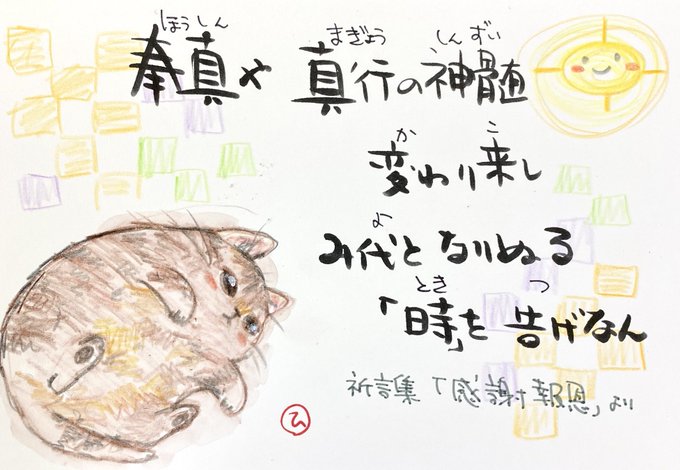 ほうしん まぎょう しんずい
奉真や 真行の神髄
か こ
変わり来し
よ
み代となりぬる
とき つ
「時」を告げなん
祈言集「感謝報恩」より
ひ